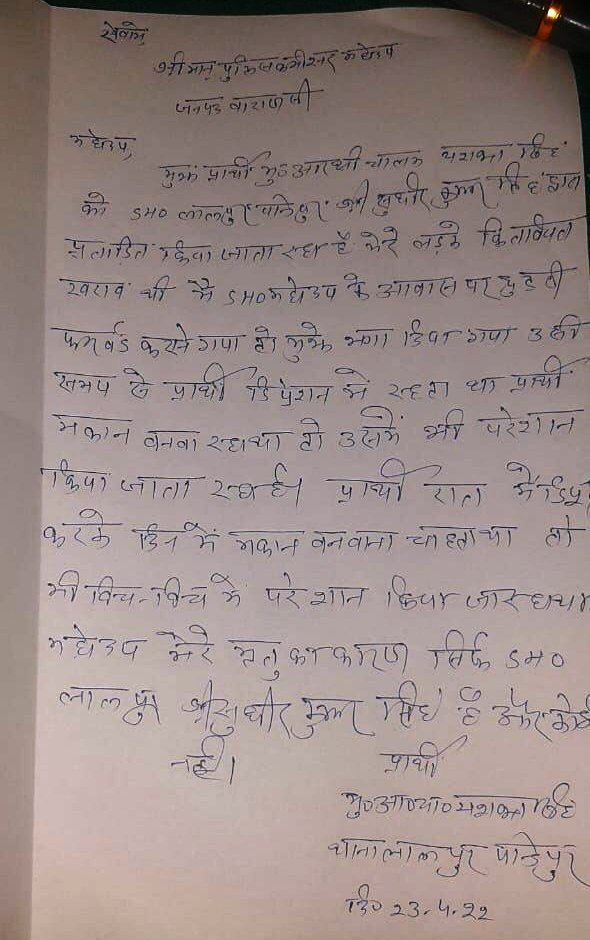 सेवामें
श्रीमान् पुलिस कमीश्नर महोदय
जनपद वाराणसी
महोदय,
मुझ प्रार्थी मु०आरक्षी चालक यशवन्त सिंह
को SHO लालपुर पाण्डेपुर श्री सुधीर कुमार सिंह द्वारा
प्रताड़ित किया जाता रहा है मेरे लड़के कि तबियत
खराब थी मै SHO महोदय के आवास पर छुट्टी
फारवर्ड कराने गया तो मुझे भगा दिया गया उसी
समय से प्रार्थी डिप्रेशन मे रहता था प्रार्थी
मकान बनवा रहा था तो उसमें भी परेशान
किया जाता रहा है। प्रार्थी रात में
करके दिन में मकान बनवाना चाहता था तो
भी बिच-बिच में परेशान किया जा रहा था
महोदय मेरे मृतु का कारण सिर्फ SHO
लालपुर श्री सुधीर कुमार सिंह है और कोई
नही।
प्रार्थी
मु०आ०चा०
थाना लालपुर पाण्डेपुर
दि० 23.4.22